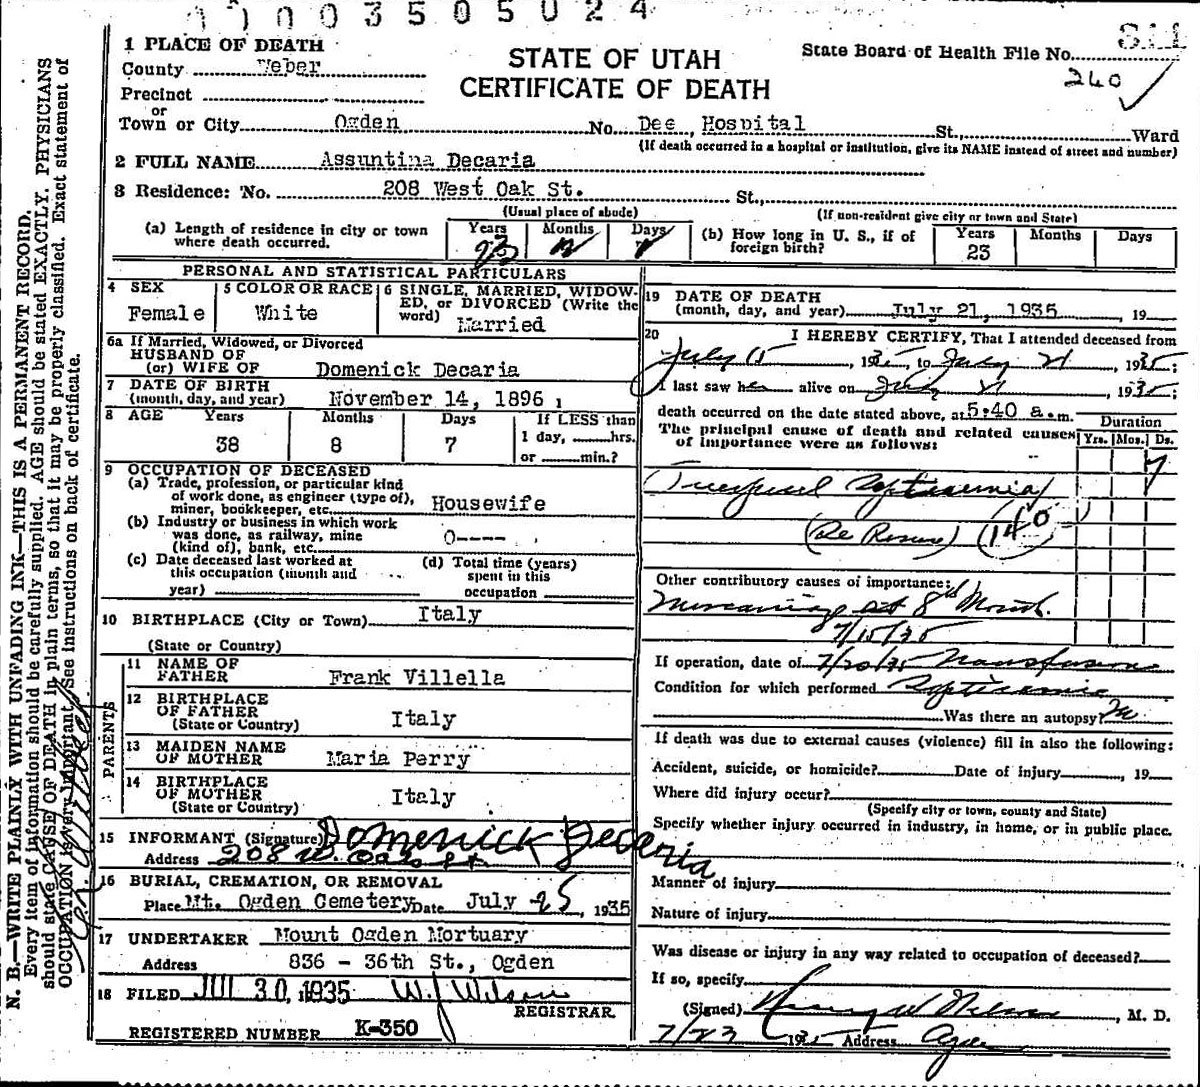 0003505024
1 PLACE OF DEATH
County Weber
STATE OF UTAH
CERTIFICATE OF DEATH
State Board of Health File No. 811
240
Precinct
or
Town or City Ogden No. Dee, Hospital St., Ward
(If death occurred in a hospital or institution, give its NAME instead of street and number)
2 FULL NAME Assuntina Decaria
3 Residence: No. 208 West Oak St. St.,
(Usual place of abode) (If non-resident give city or town and State)
(a) Length of residence in city or town where death occurred. Years 23 Months Days
(b) How long in U. S., if of foreign birth? Years 23 Months Days
PERSONAL AND STATISTICAL PARTICULARS
4 SEX Female
5 COLOR OR RACE White
6 SINGLE, MARRIED, WIDOWED, or DIVORCED (Write the word) Married
6a If Married, Widowed, or Divorced
HUSBAND OF
(or) WIFE OF Domenick Decaria
7 DATE OF BIRTH
(month, day, and year) November 14, 1896
8 AGE Years 38 Months 8 Days 7 If LESS than 1 day, hrs. or min.?
9 OCCUPATION OF DECEASED
(a) Trade, profession, or particular kind
of work done, as engineer (type of),
miner, bookkeeper, etc. Housewife
(b) Industry or business in which work
was done, as railway, mine
(kind of), bank, etc. 0----
(c) Date deceased last worked at
this occupation (month and
year)
(d) Total time (years)
spent in this
occupation
10 BIRTHPLACE (City or Town) Italy
(State or Country)
PARENTS
11 NAME OF
FATHER Frank Villella
12 BIRTHPLACE
OF FATHER
(State or Country) Italy
13 MAIDEN NAME
OF MOTHER Maria Perry
14 BIRTHPLACE
OF MOTHER
(State or Country) Italy
15 INFORMANT (Signature) Domenick Decaria
Address 208 W. Oak St
16 BURIAL, CREMATION, OR REMOVAL
Place Mt. Ogden Cemetery Date July 25, 1935
17 UNDERTAKER Mount Ogden Mortuary
Address 836 - 36th St., Ogden
18 FILED JUL 30, 1935 W. J. Wilson
REGISTRAR
REGISTERED NUMBER K-350
19 DATE OF DEATH
(month, day, and year) July 21, 1935, 19
20 I HEREBY CERTIFY, That I attended deceased from
July 15, 1935, to July 21, 1935
I last saw her alive on July 21, 1935
death occurred on the date stated above, at 5:40 a.m.
The principal cause of death and related causes
of importance were as follows:
Duration
Yrs. Mos. Ds.
7
Puerperal Septicaemia
140
Other contributory causes of importance:
Miscarriage at 8th Month.
7/15/35
If operation, date of 7/20/35 Transfusions
Condition for which performed Septicemia
Was there an autopsy? No
If death was due to external causes (violence) fill in also the following:
Accident, suicide, or homicide? Date of injury , 19
Where did injury occur?
(Specify city or town, county and State)
Specify whether injury occurred in industry, in home, or in public place.
Manner of injury
Nature of injury
Was disease or injury in any way related to occupation of deceased?
If so, specify
(Signed) W. Nelson, M. D.
7/23 1935 Address Ogden
N. B.—WRITE PLAINLY WITH UNFADING INK—THIS IS A PERMANENT RECORD.
Every item of information should be carefully supplied. AGE should be stated EXACTLY. PHYSICIANS
should state CAUSE OF DEATH in plain terms, so that it may be properly classified. Exact statement of
OCCUPATION is very important. See instructions on back of certificate.